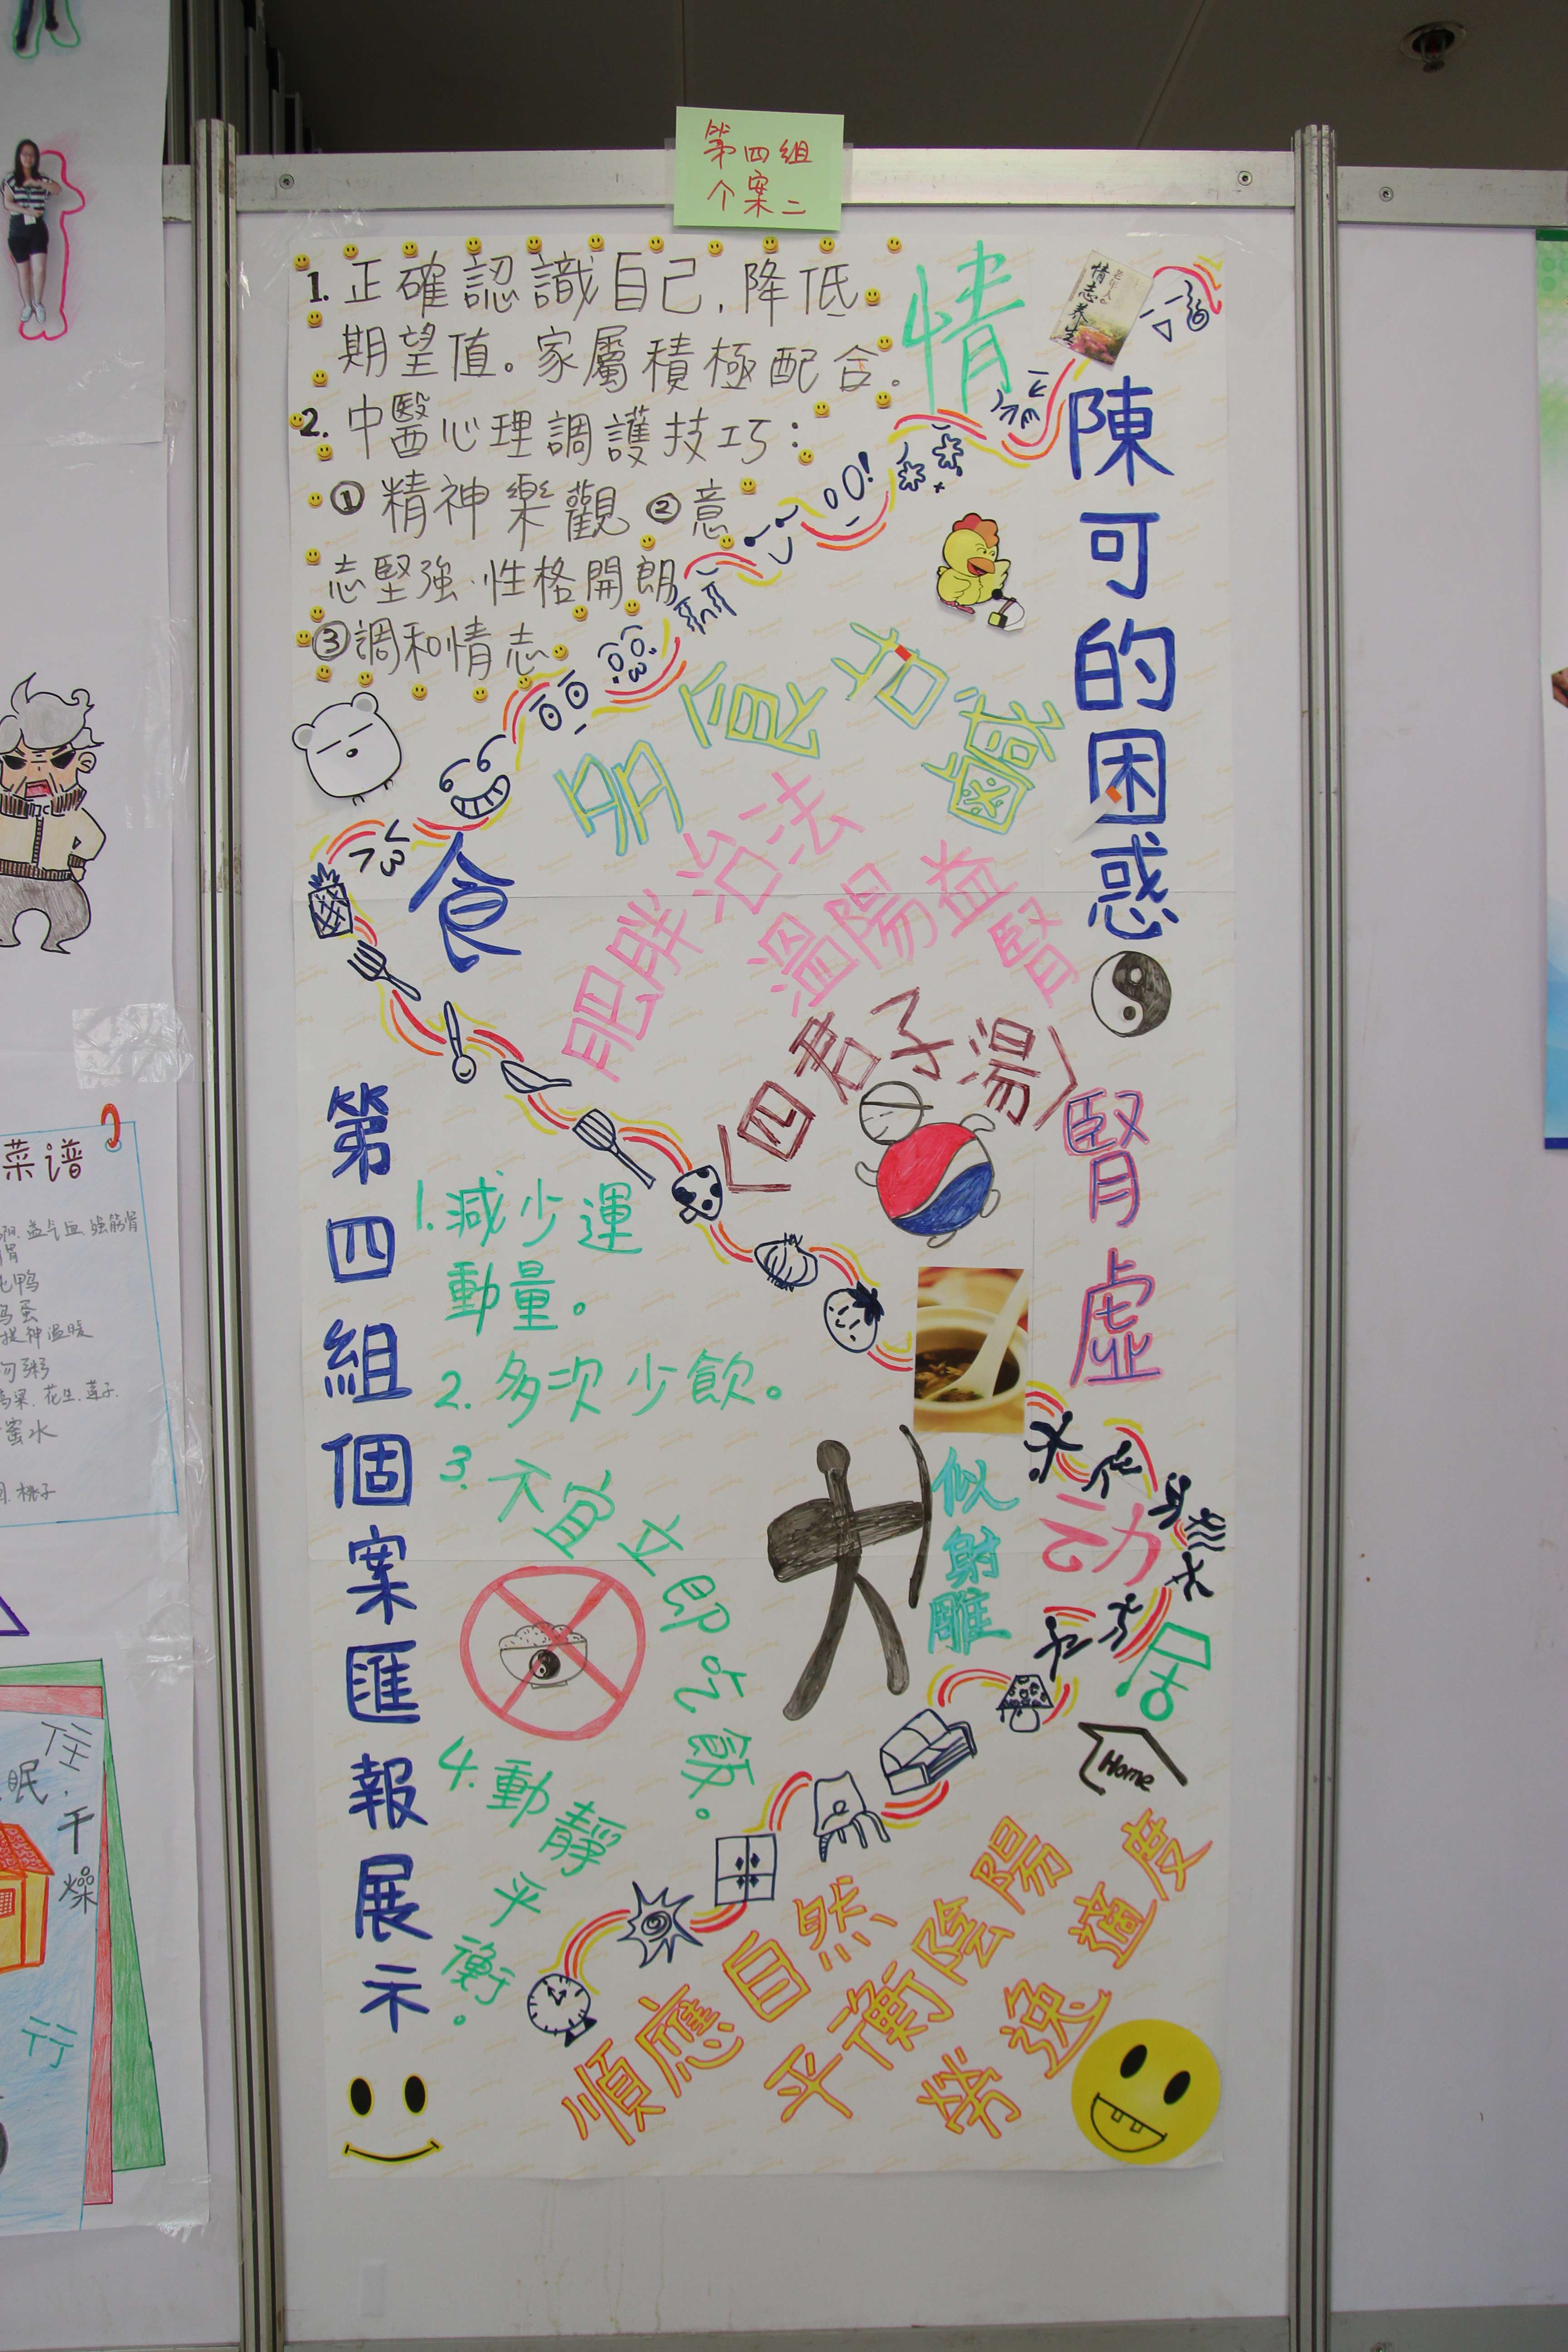 第四組
个案二
1. 正確認識自己，降低
期望值。家屬積極配合。
2. 中醫心理調護技巧：
① 精神樂觀 ② 意
志堅強．性格開朗
③調和情志
情
老年人的
情志养生
陳可的困惑
多食甘鹹
食
肥胖治法
溫陽益腎
（四君子湯）
腎虛
第四組個案匯報展示
1. 減少運
動量。
2. 多次少飲。
3. 不宜立即吃飯。
4. 動靜平衡。
似射雕
动
居
Home
順應自然
平衡陰陽
勞逸適度
菜谱
益气血 强筋骨
鸭
蛋
提神温暖
粥
花生.莲子.
蜜水
桃子
住
眠.
干
燥
行